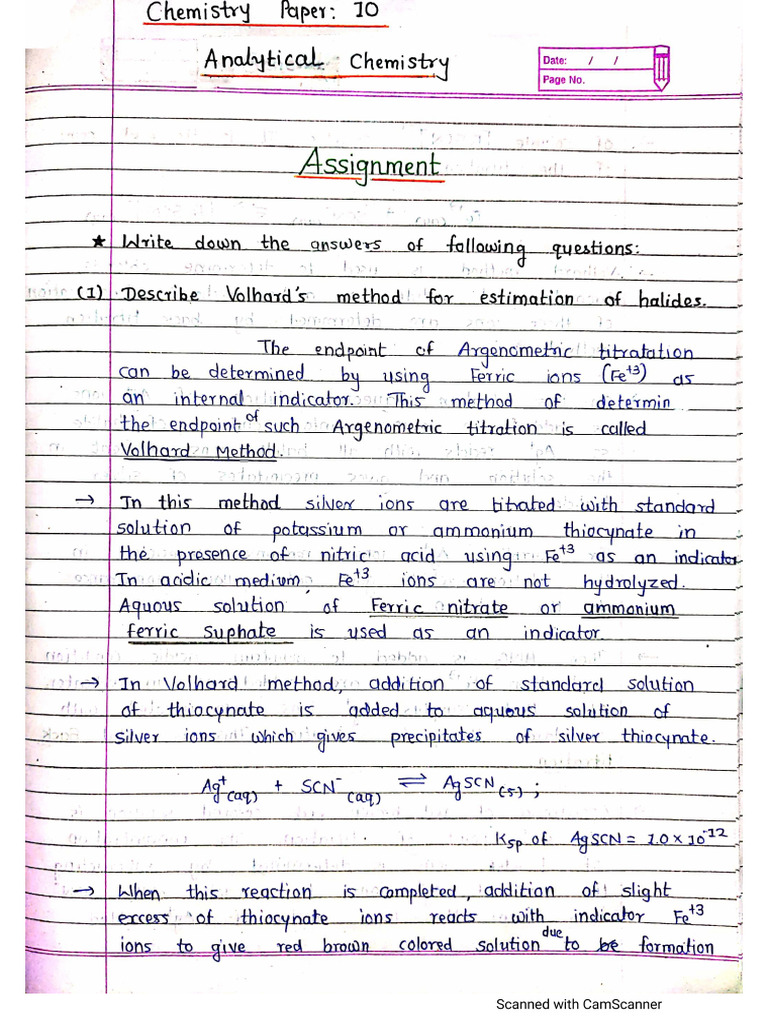 Chemistry Paper: 10
Analytical Chemistry
Date: / /
Page No.
Assignment
★ Write down the answers of following questions:
(1) Describe Volhard's method for estimation of halides.
The endpoint of Argenometric titratation
can be determined by using Ferric ions (Fe+3) as
an internal indicator. This method of determin
the endpoint of such Argenometric titration is called
Volhard Method.
→ In this method silver ions are titrated with standard
solution of potassium or ammonium thiocynate in
the presence of nitric acid using Fe+3 as an indicator
In acidic medium, Fe+3 ions are not hydrolyzed.
Aquous solution of Ferric nitrate or ammonium
ferric Suphate is used as an indicator.
→ In Volhard method, addition of standard solution
of thiocynate is added to aquous solution of
silver ions which gives precipitates of silver thiocynate.
Ag+(aq) + SCN-(aq) ⇌ AgSCN(s) ;
Ksp of AgSCN = 1.0 × 10-12
→ When this reaction is completed, addition of slight
excess of thiocynate ions reacts with indicator Fe+3
ions to give red brown colored solution due to be formation
Scanned with CamScanner